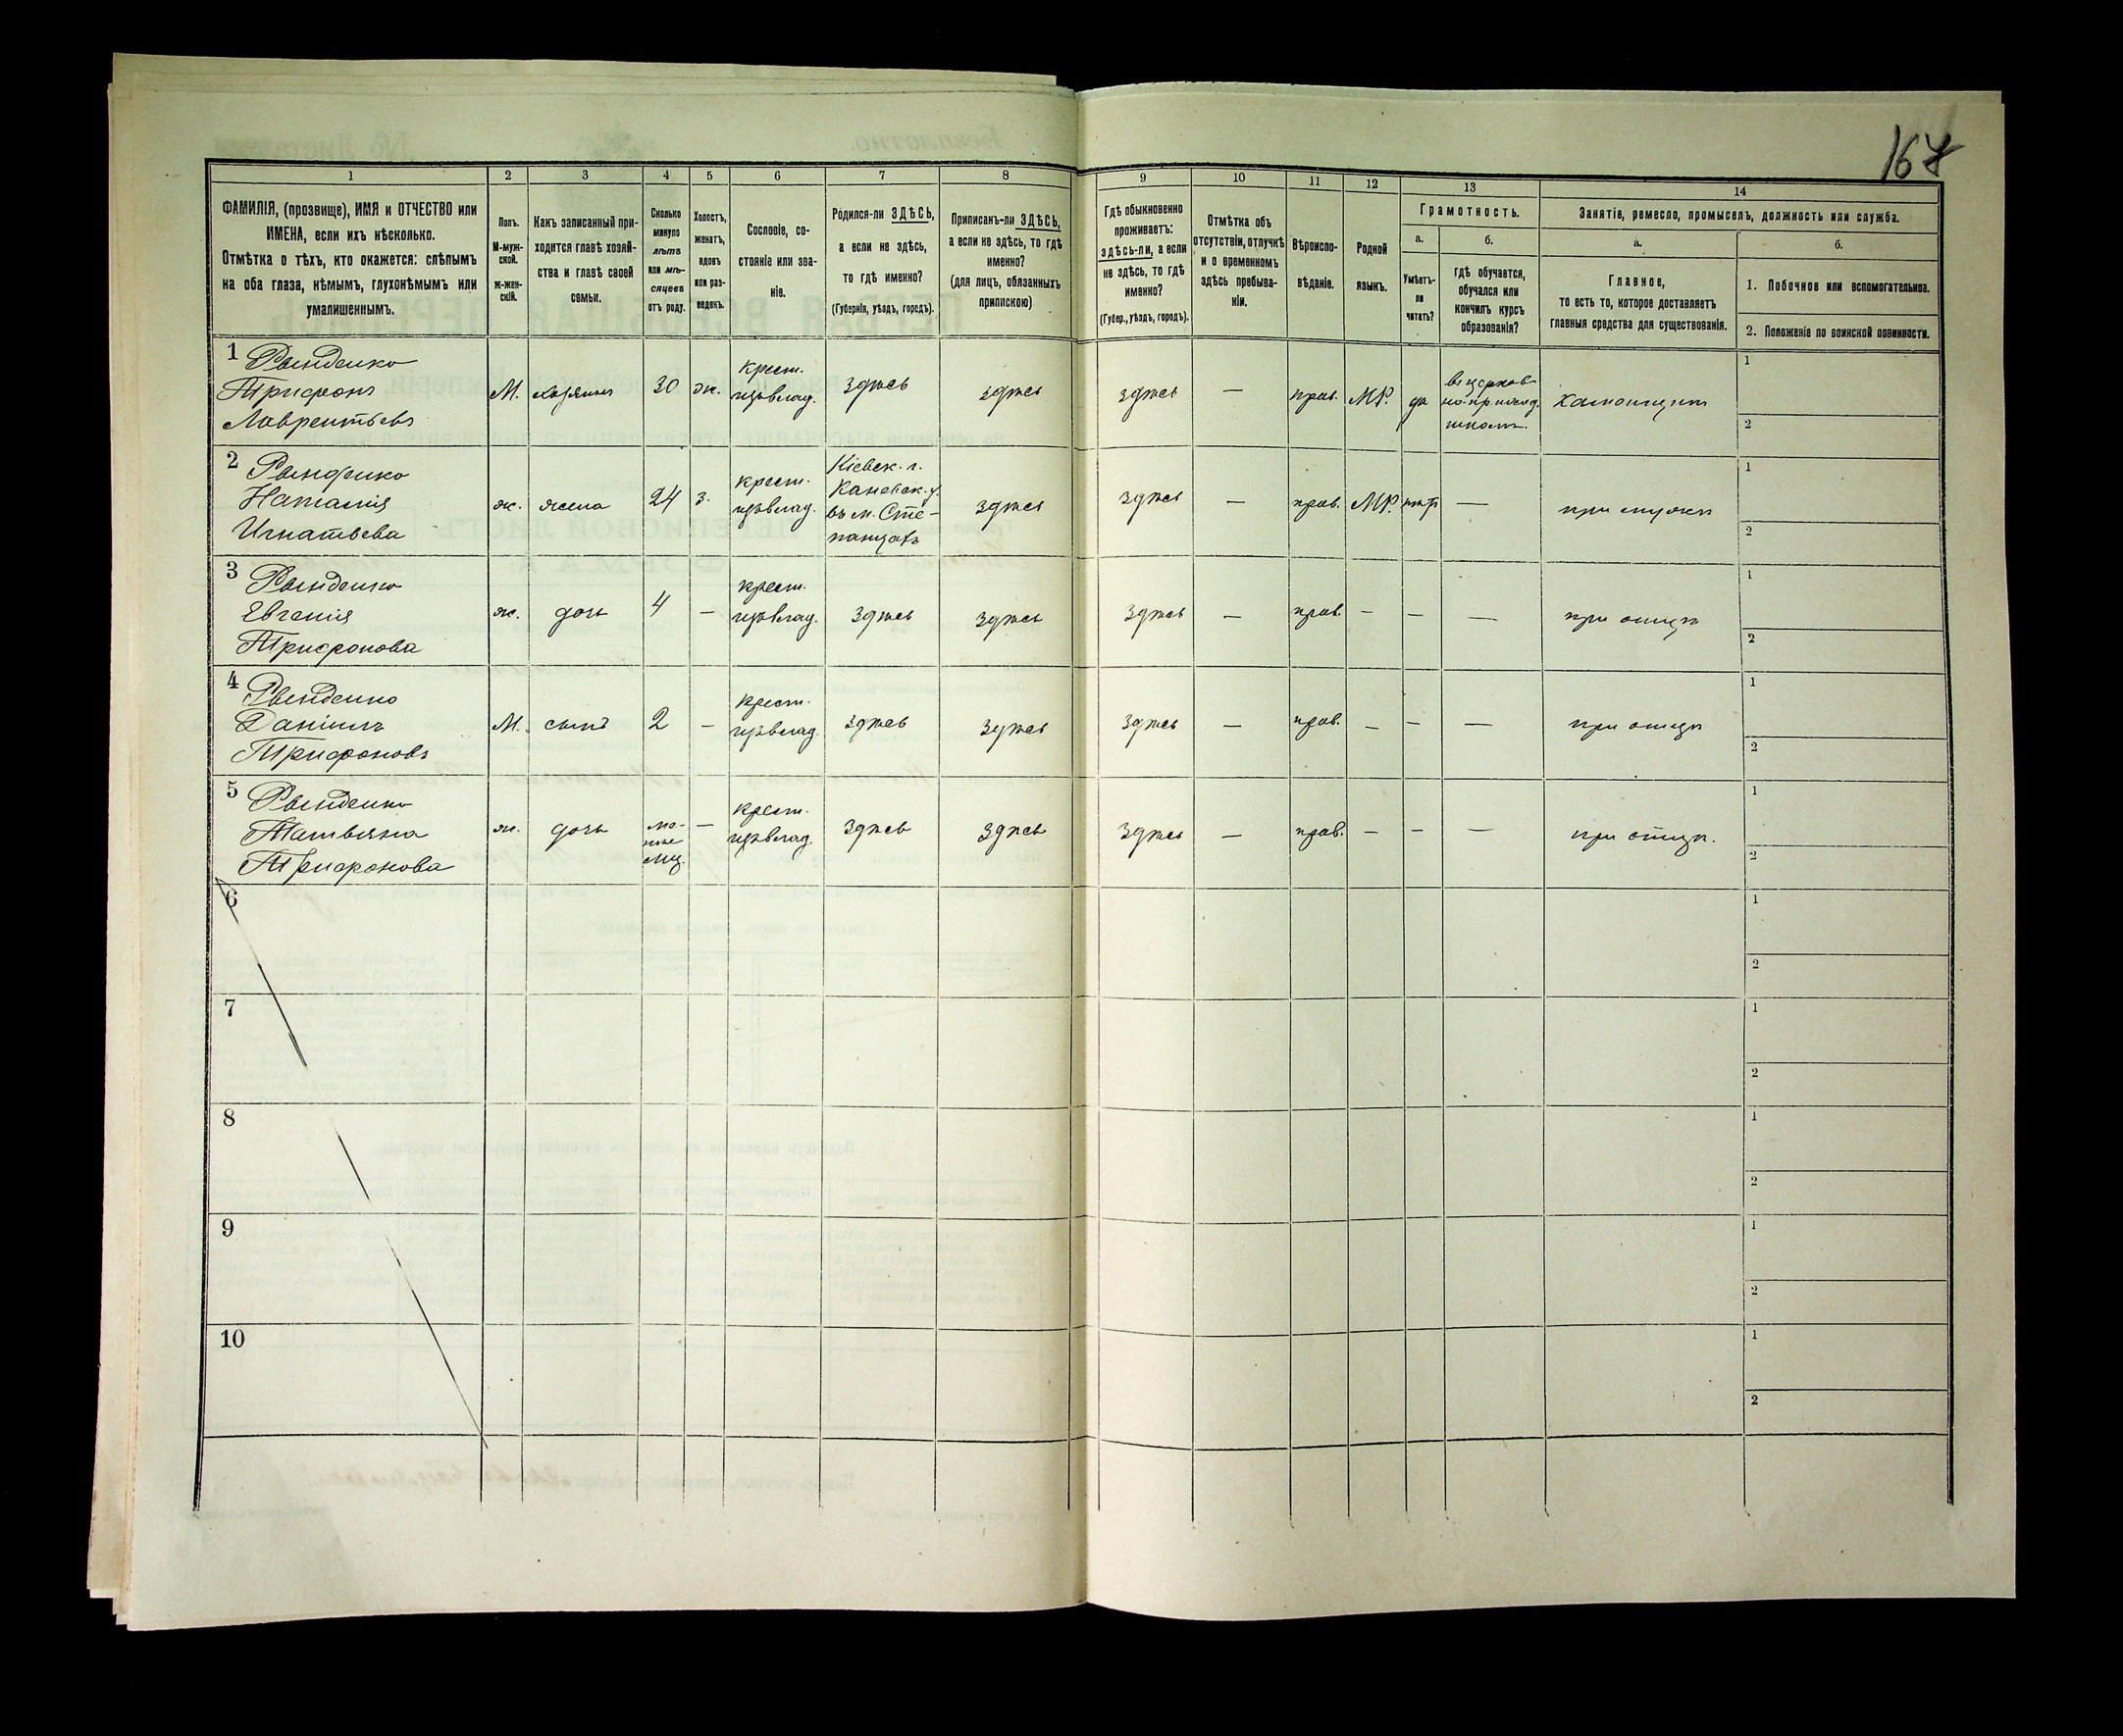 167
1 2 3 4 5 6 7 8 9 10 11 12 13 14
ФАМИЛІЯ, (прозвище), ИМЯ и ОТЧЕСТВО или
ИМЕНА, если ихъ нѣсколько.
Отмѣтка о тѣхъ, кто окажется: слѣпымъ
на оба глаза, нѣмымъ, глухонѣмымъ или
умалишеннымъ.
Полъ.
М-муж-
ской.
ж-жен-
скій.
Какъ записанный при-
ходится главѣ хозяй-
ства и главѣ своей
семьи.
Сколько
минуло
лѣтъ
или мѣ-
сяцевъ
отъ роду.
Холостъ,
женатъ,
вдовъ
или раз-
веденъ.
Сословіе, со-
стояніе или зва-
ніе.
Родился-ли ЗДѢСЬ,
а если не здѣсь,
то гдѣ именно?
(Губернія, уѣздъ, городъ).
Приписанъ-ли ЗДѢСЬ,
а если не здѣсь, то гдѣ
именно?
(для лицъ, обязанныхъ
припискою)
Гдѣ обыкновенно
проживаетъ:
здѣсь-ли, а если
не здѣсь, то гдѣ
именно?
(Губер., уѣздъ, городъ).
Отмѣтка объ
отсутствіи, отлучкѣ
и о временномъ
здѣсь пребыва-
ніи.
Вѣроиспо-
вѣданіе.
Родной
языкъ.
Грамотность.
а.
Умѣетъ-
ли
читать?
б.
гдѣ обучается,
обучался или
кончилъ курсъ
образованія?
Занятіе, ремесло, промыселъ, должность или служба.
а.
Главное,
то есть то, которое доставляетъ
главныя средства для существованія.
б.
1. Побочное или вспомогательное.
2. Положеніе по воинской повинности.
1 Рынденко
Трифонъ
Лаврентьевъ
М. хозяинъ 30 ж.
крест.
здѣсь здѣсь здѣсь — прав. МР. да
въ церков-
но-приход.
школѣ.
1
2
2 Рынденко
Наталия
Игнатьева
ж. жена 24 з.
крест.
Кіевск. г.
Каневск. у.
въ м. Сте-
панцахъ
здѣсь здѣсь — прав. МР. нѣтъ — при мужѣ
1
2
3 Рынденко
Евгенія
Трифонова
ж. дочь 4 —
крест.
здѣсь здѣсь здѣсь — прав. — — — при отцѣ
1
2
4 Рынденко
Даніилъ
Трифоновъ
М. сынъ 2 —
крест.
здѣсь здѣсь здѣсь — прав. — — — при отцѣ
1
2
5 Рынденко
Татьяна
Трифонова
ж. дочь
ме-
нѣе
мц.
—
крест.
здѣсь здѣсь здѣсь — прав. — — — при отцѣ.
1
2
6
1
2
7
1
2
8
1
2
9
1
2
10
1
2